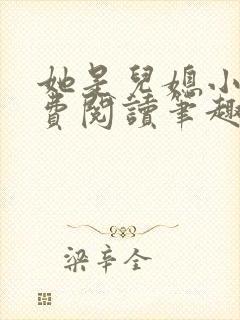 她是兒媳小
費閱讀筆趣
梁辛全